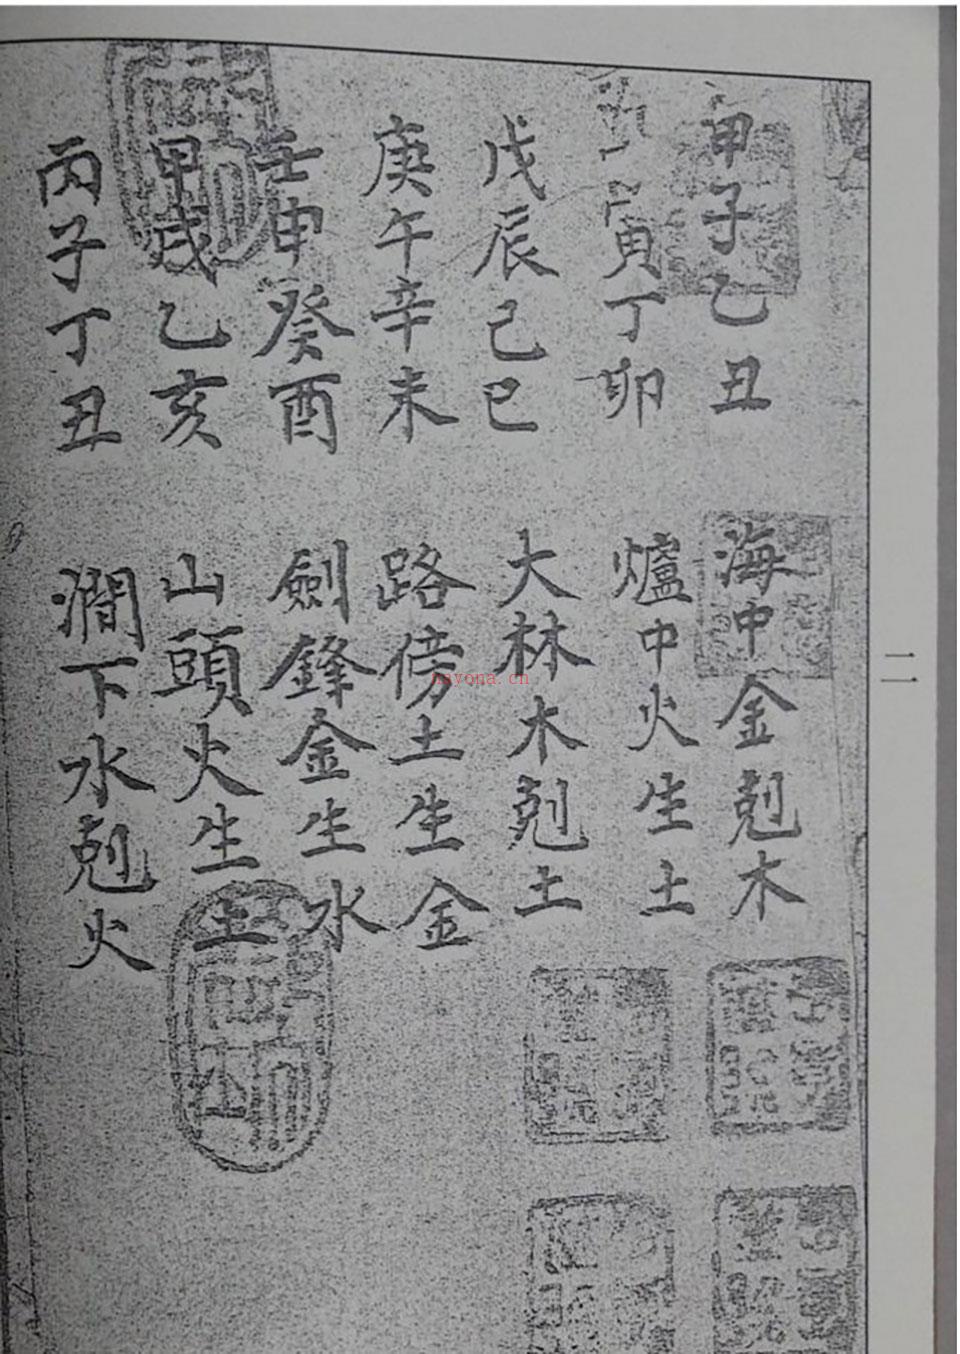 甲子乙丑 海中金剋木
寅丁卯 爐中火生土
戊辰己巳 大林木剋土
庚午辛未 路傍土生金
壬申癸酉 劍鋒金生水
甲戌乙亥 山頭火生土
丙子丁丑 澗下水剋火
二
nayona.cn